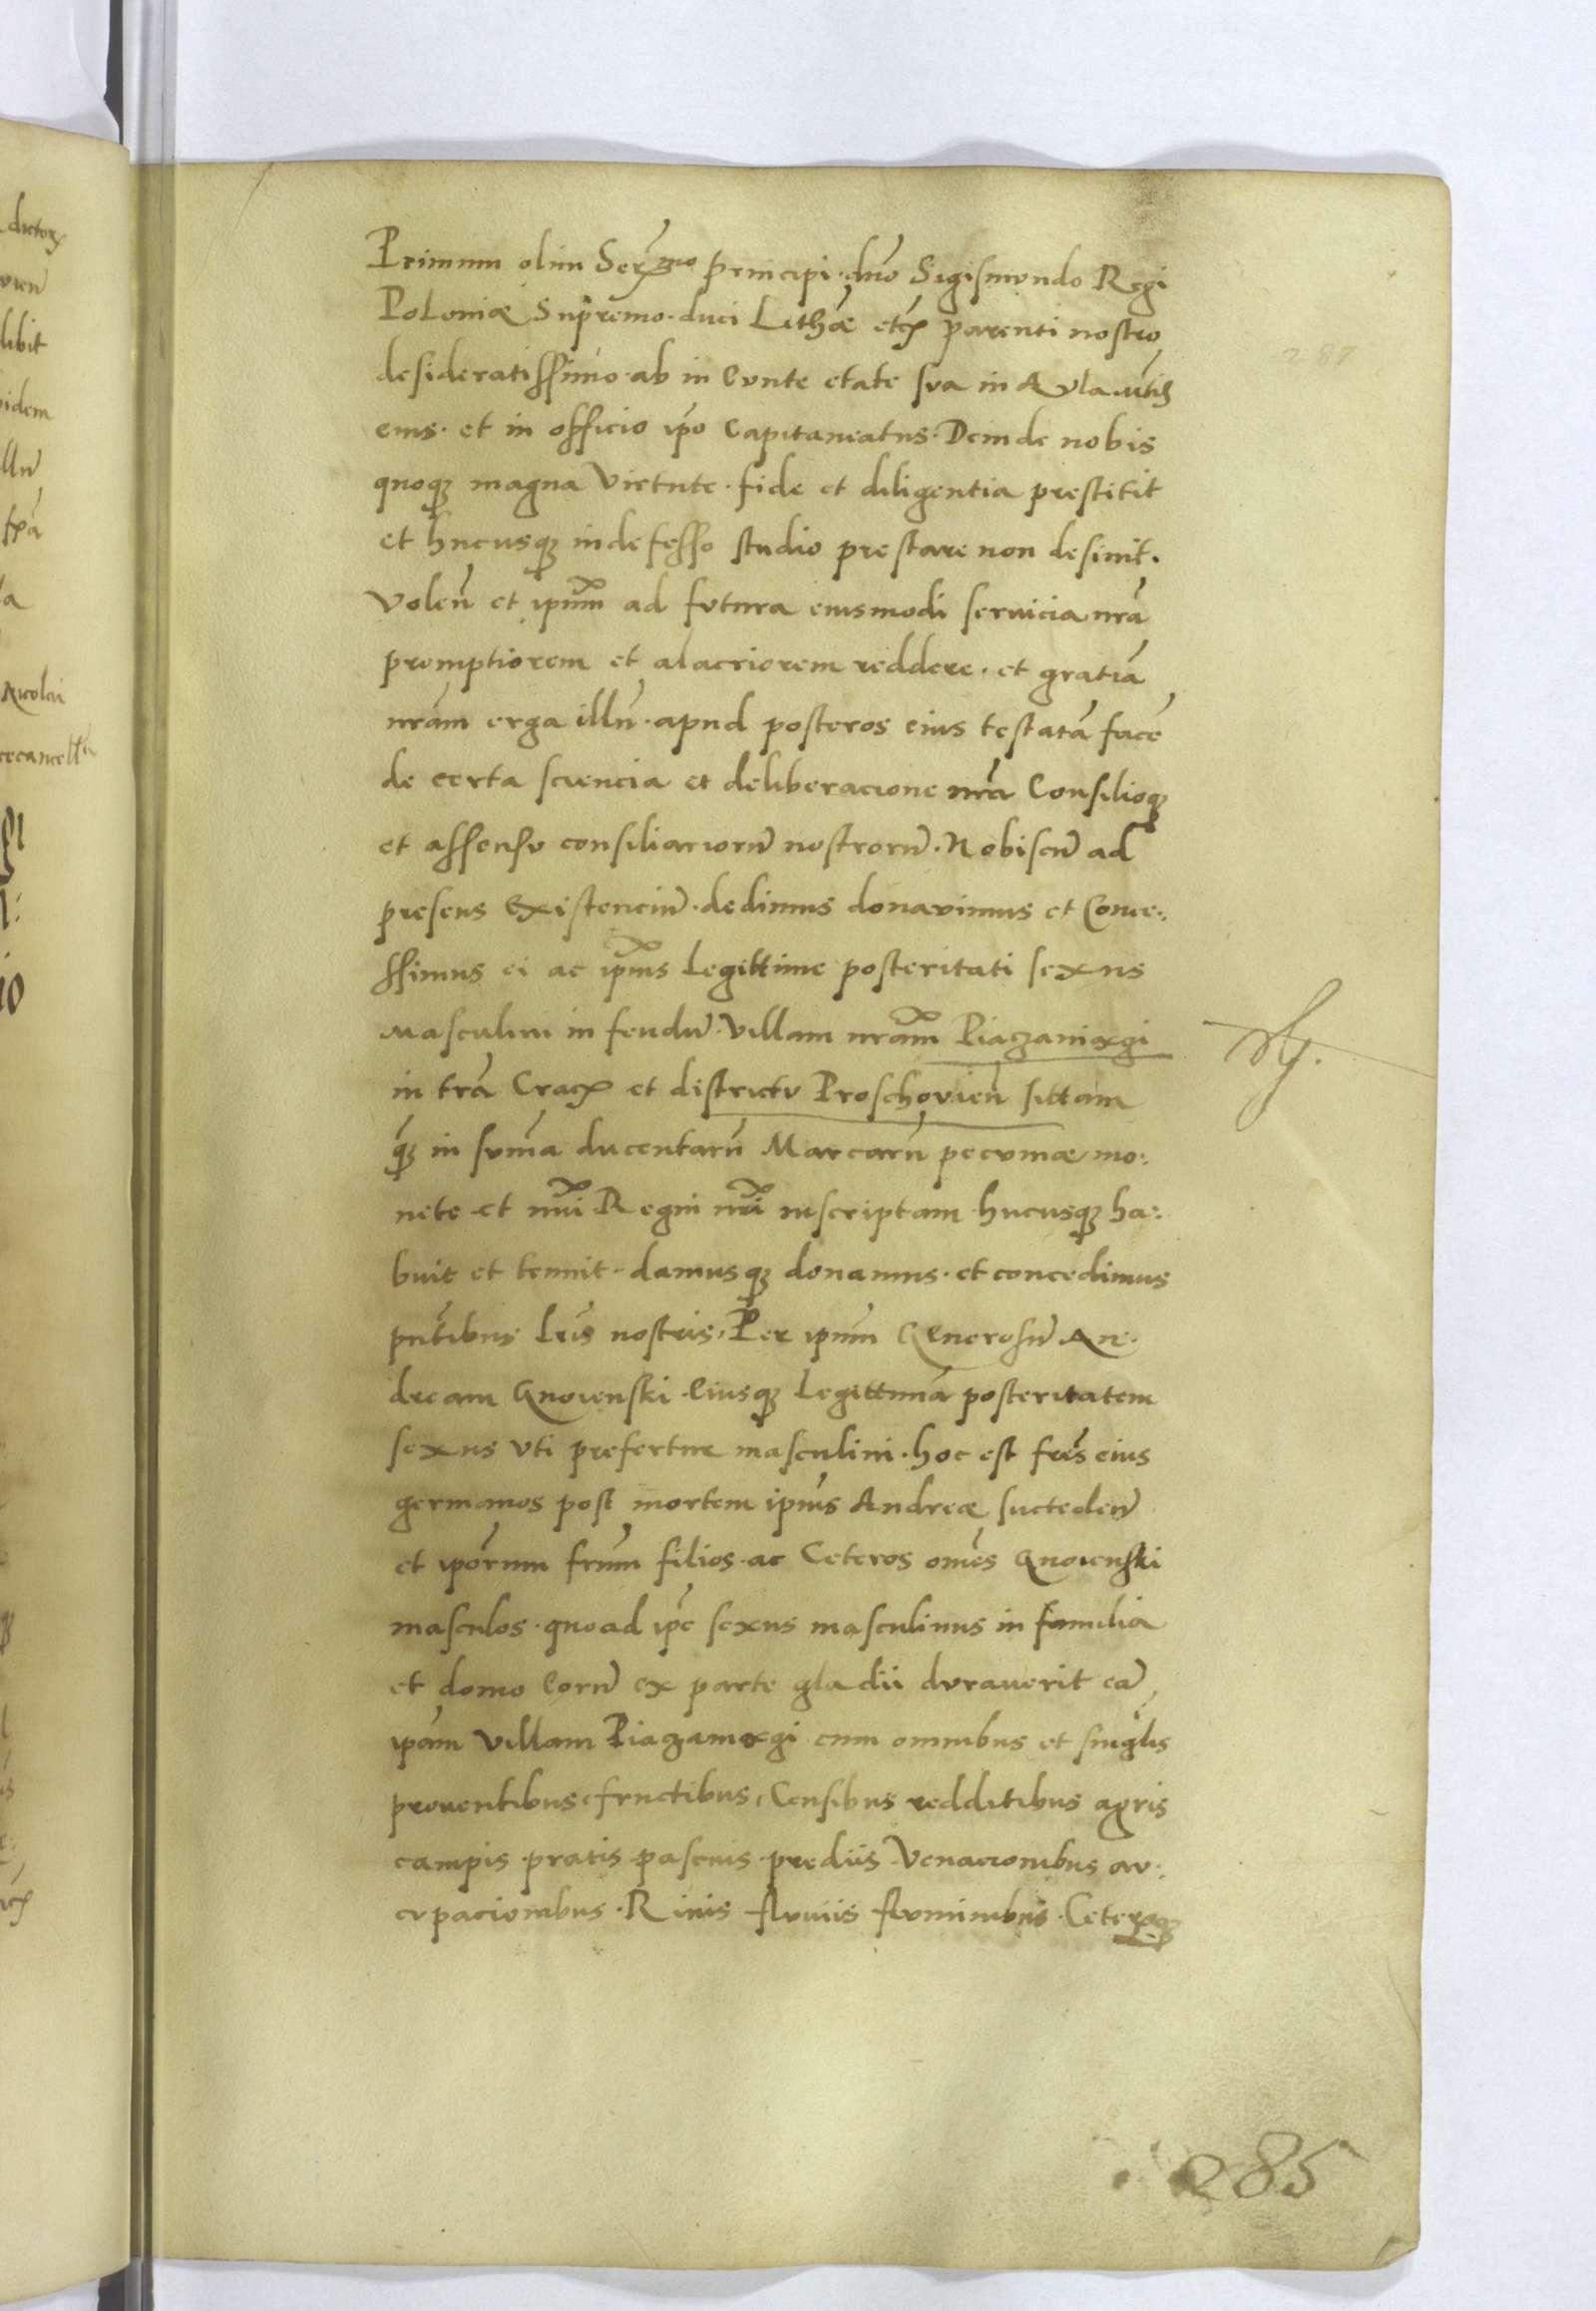 Primum olim Sermo principi dno Sigismundo Regi
Poloniæ Supremo duci Lithæ etc parenti nostro
desideratissimo ab in eunte etate sua in Aula
eius et in officio ipo Capitaneatus Deinde nobis
quoqz magna virtute fide et diligentia prestitit
et hucusqz indefesso studio prestare non desinit.
Volen et ipum ad futura eiusmodi seruicia nra
promptiorem et alacriorem reddere. et gratia
nram erga illu apud posteros eius testata face
de certa sciencia et deliberacione nra Consilioqz
et assensu consiliarioru nostroru. Nobiscu ad
presens existenciu dedimus donavimus et Conce:
ssimus ei ac ipius Legittime posteritati sexus
Masculini in feudu villam nram Piazanixgi
in tra Crac et districtu Proschovien sittam
qz in suma ducentaru Marcaru pecuniæ mo:
nete et nui Regni nri inscriptam hucusqz ha:
buit et tenuit damusqz donamus et concedimus
pntibus lris nostris. Per ipum Generosu An:
dream Gnoienski Eiusqz Legittima posteritatem
sexus vti prefertur masculini hoc est fres eius
germanos post mortem ipius Andreæ succeden
et iporum frum filios ac Ceteros omes Gnoienski
masculos quoad ipe sexus masculinus in familia
et domo eoru ex parte gladii duraverit ea
ipam villam Piazanixgi cum omnibus et singlis
proventibus fructibus, Censibus redditibus agris
campis pratis pascuis prediis Venacionibus au:
cupacionibus Rivis fluviis fluminibus Ceterqz
287
285